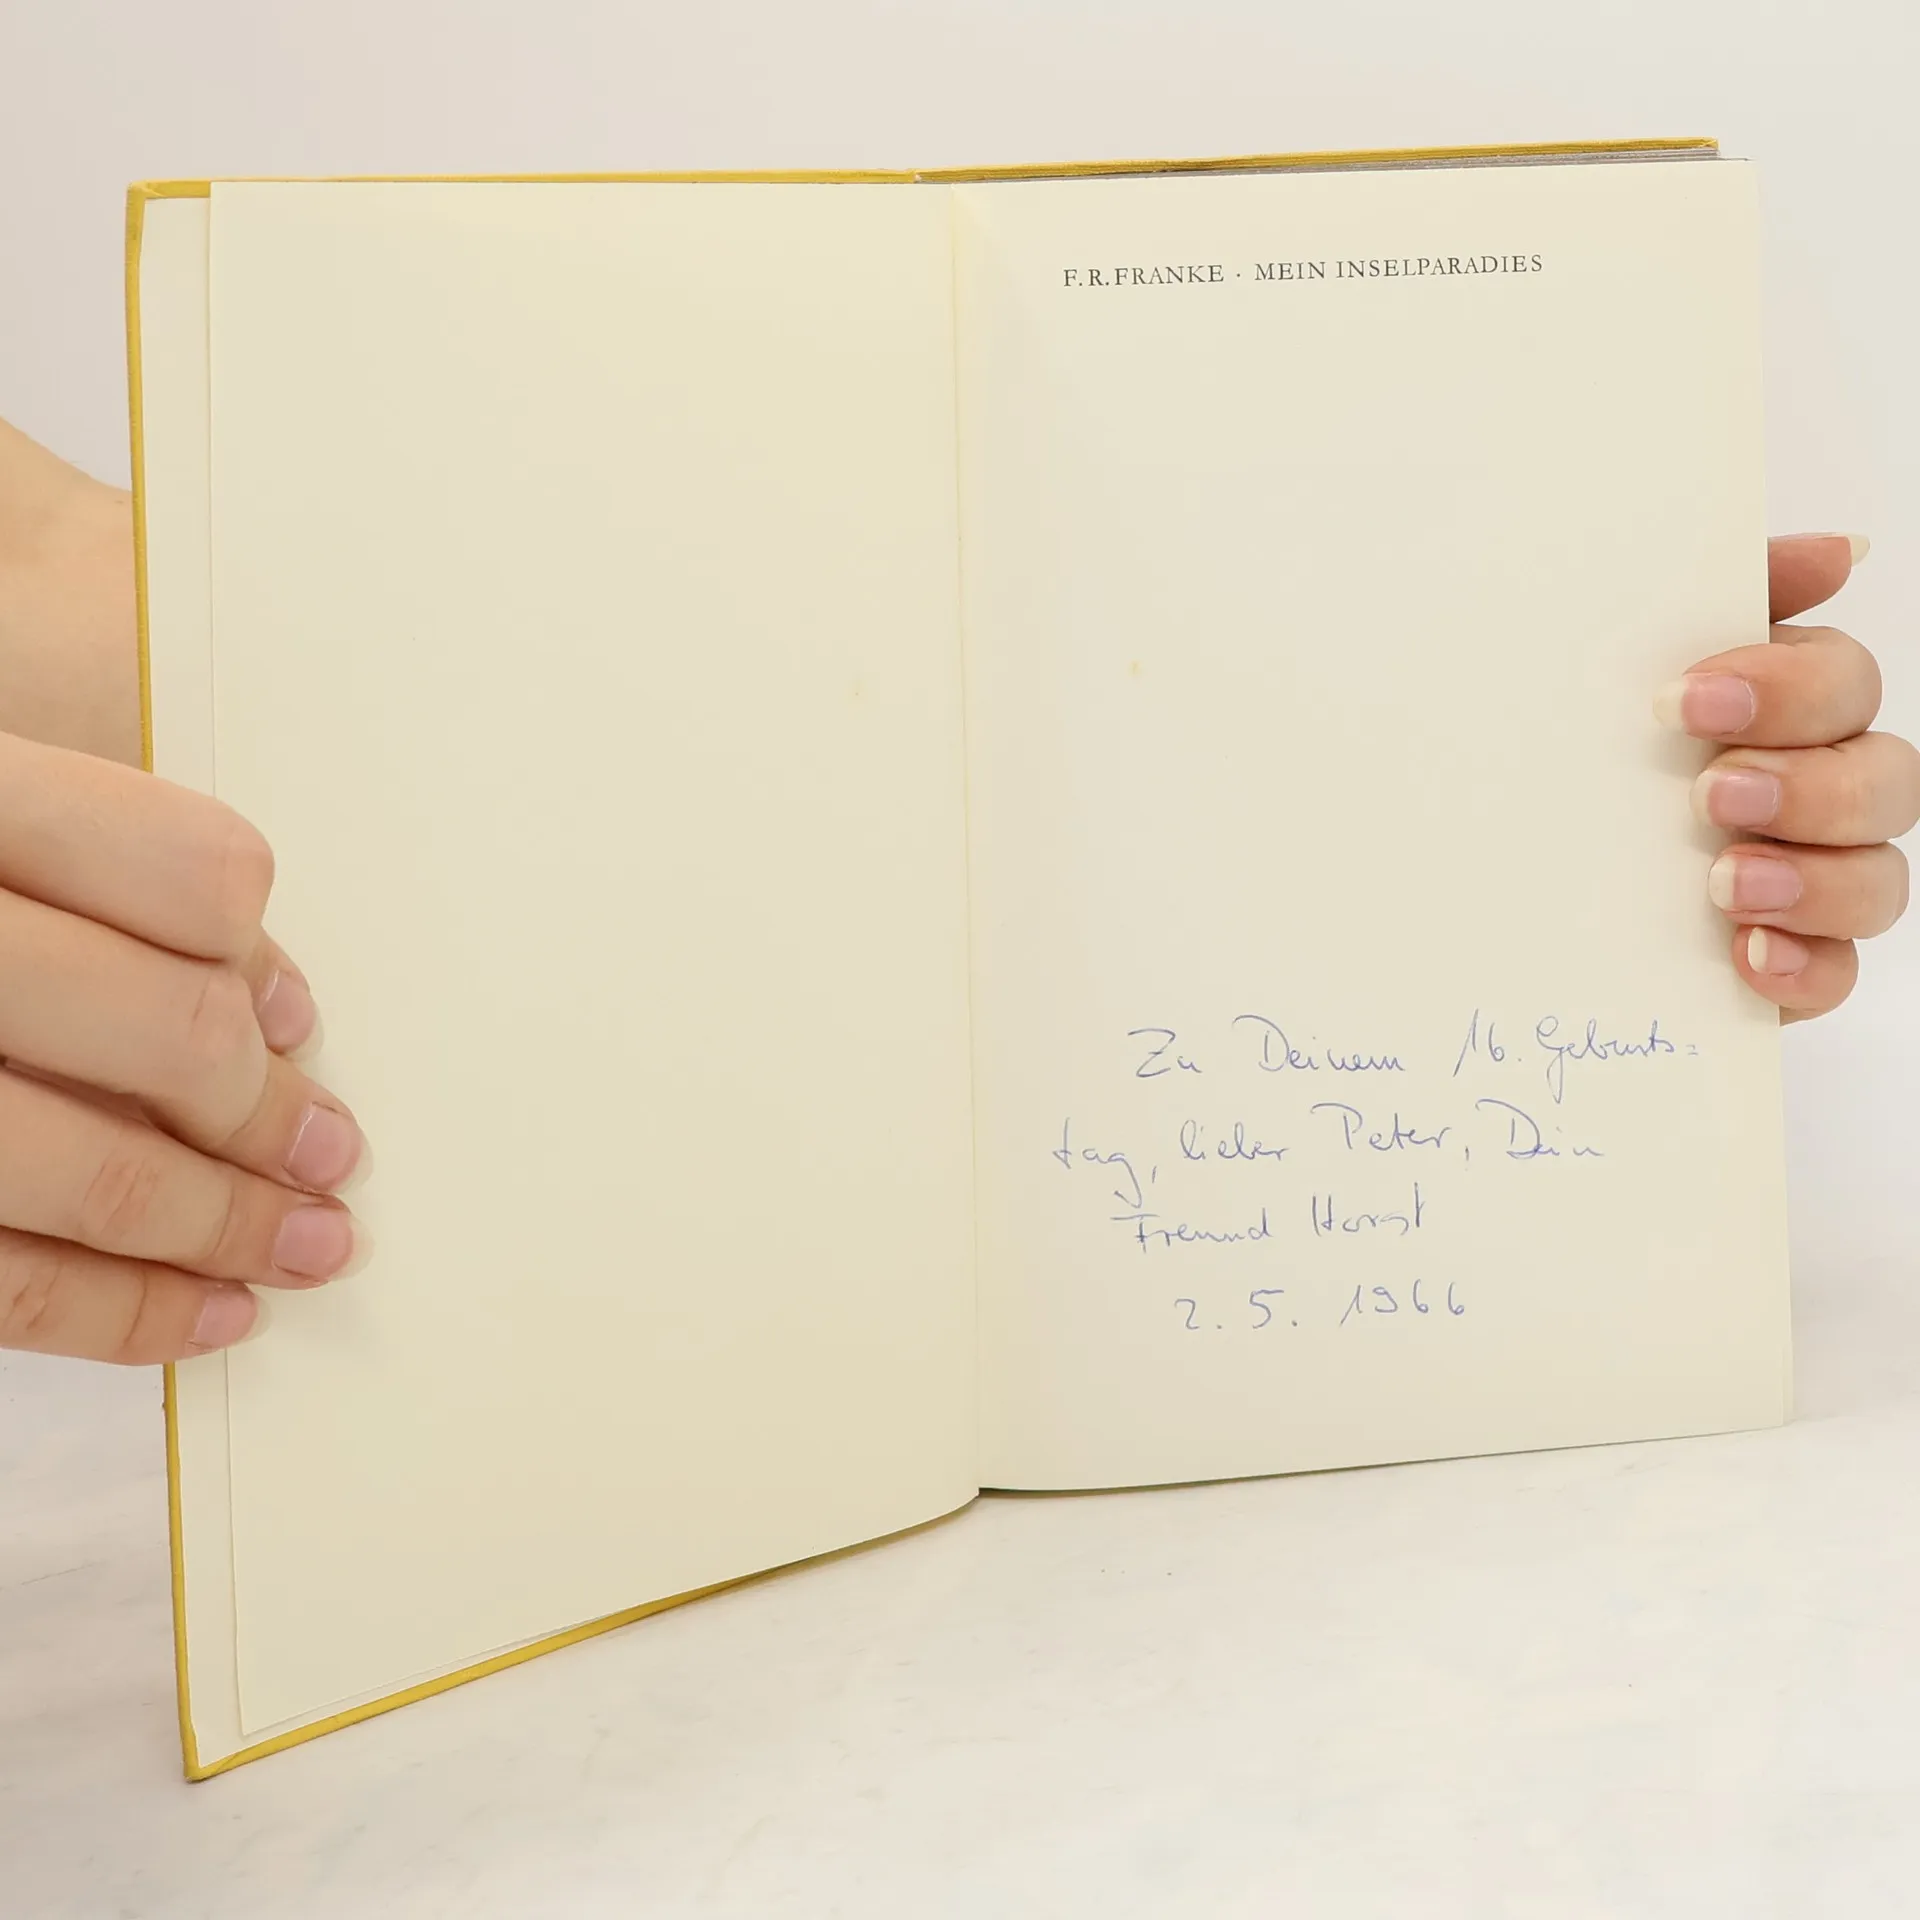 F. R. FRANKE · MEIN INSELPARADIES
Zu Deinem 16. Geburts=
tag, lieber Peter, Dein
Freund Horst
2. 5. 1966